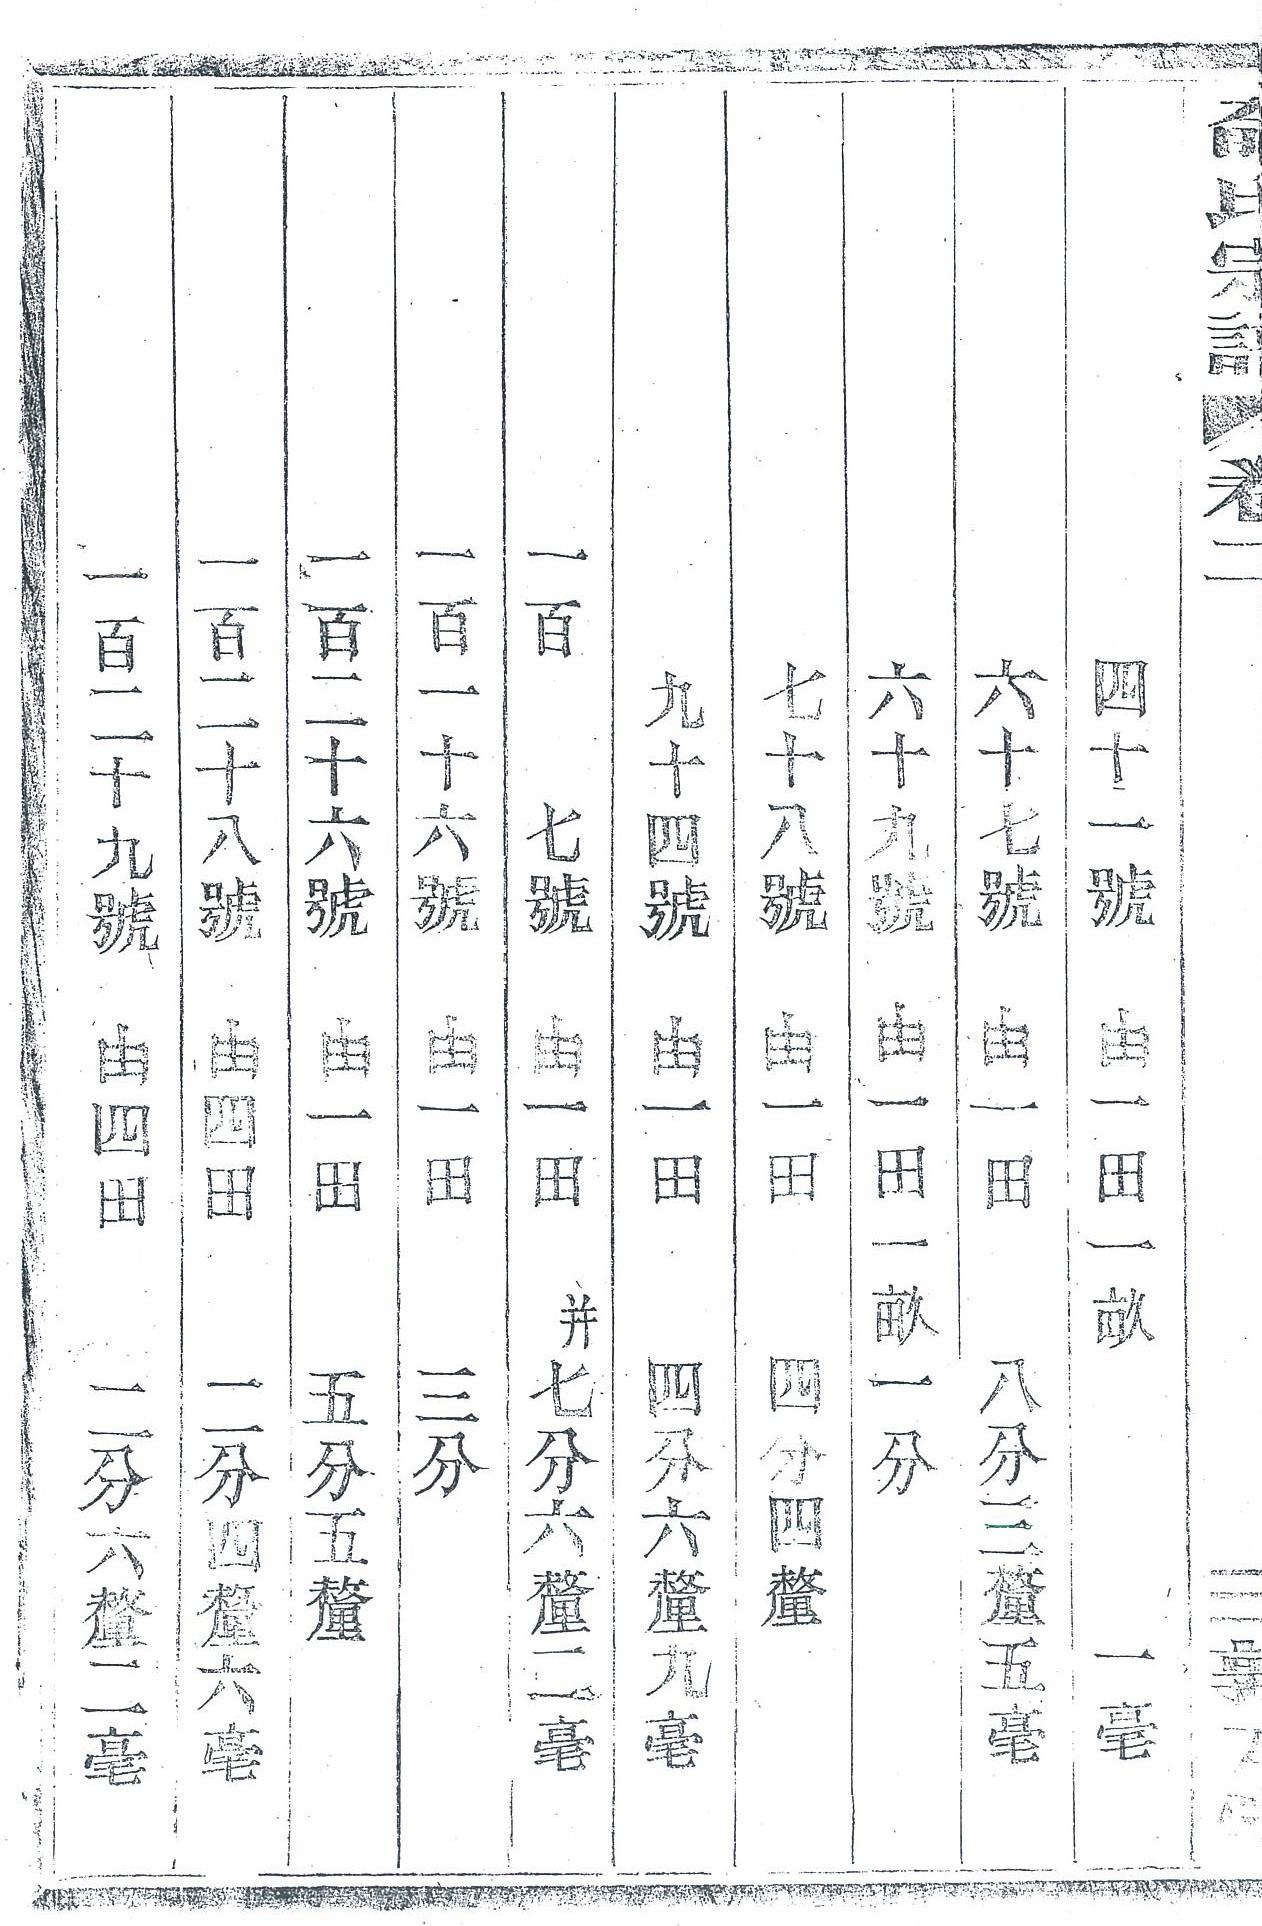 氏宗譜 卷二
四十一號 由一田一畝 一毫
六十七號 由一田 八分三釐五毫
六十九號 由一田一畝一分
七十八號 由一田 四分四釐
九十四號 由一田 四分六釐九毫
一百 七號 由一田 并七分六釐二毫
一百一十六號 由一田 三分
一百二十六號 由一田 五分五釐
一百二十八號 由四田 二分四釐六毫
一百二十九號 由四田 二分六釐二毫